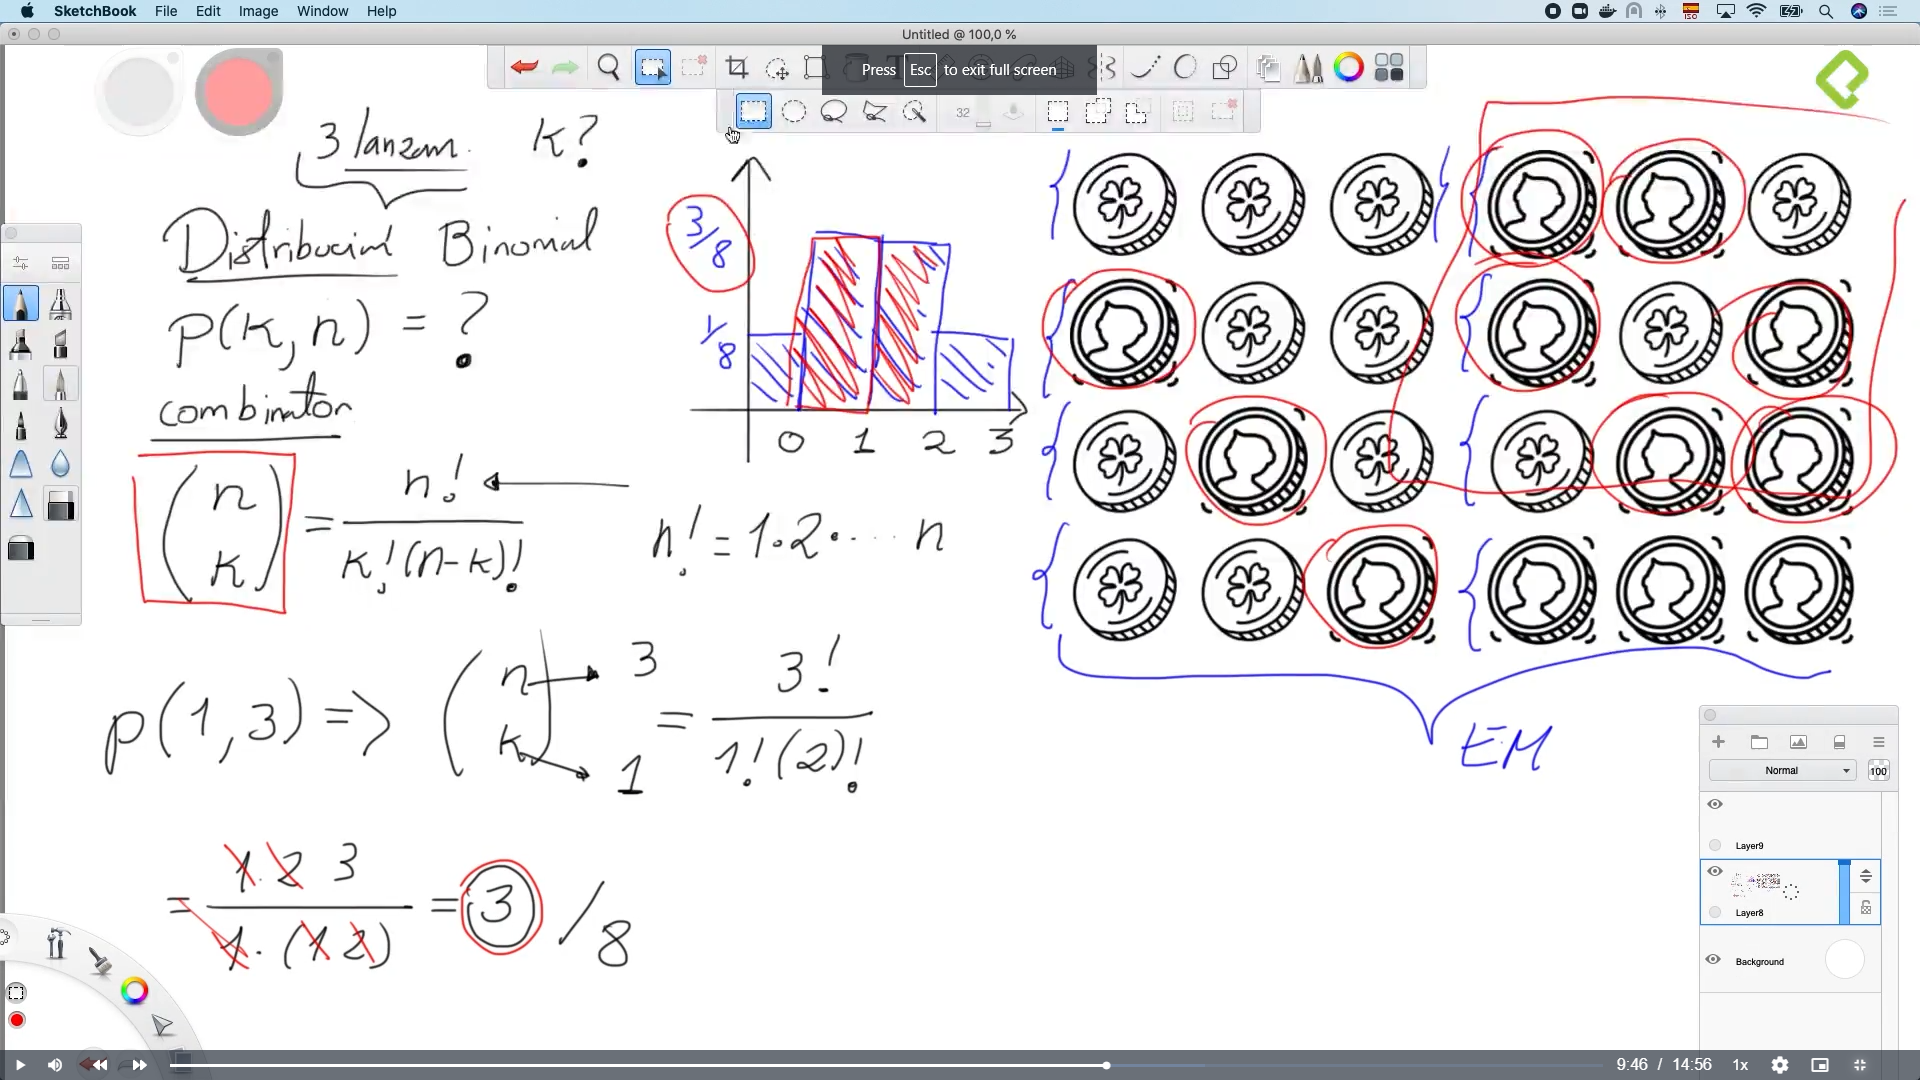 SketchBook File Edit Image Window Help
ISO
Untitled @ 100,0 %
Press Esc to exit full screen
32
3 lanzam. k?
Distribución Binomial
P(k,n) = ?
combinator
(n k) = n! / k!(n-k)!
n! = 1·2· ... n
3/8
1/8
0 1 2 3
p(1,3) => (n k) → 3 → 1 = 3! / 1!(2)!
= 1·2 3 / 1·(1 2) = 3 / 8
EM
Normal 100
Layer9
Layer8
Background
9:46 / 14:56 1x